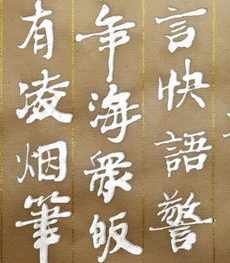 言快語警
年海眾皈
有凌烟筆